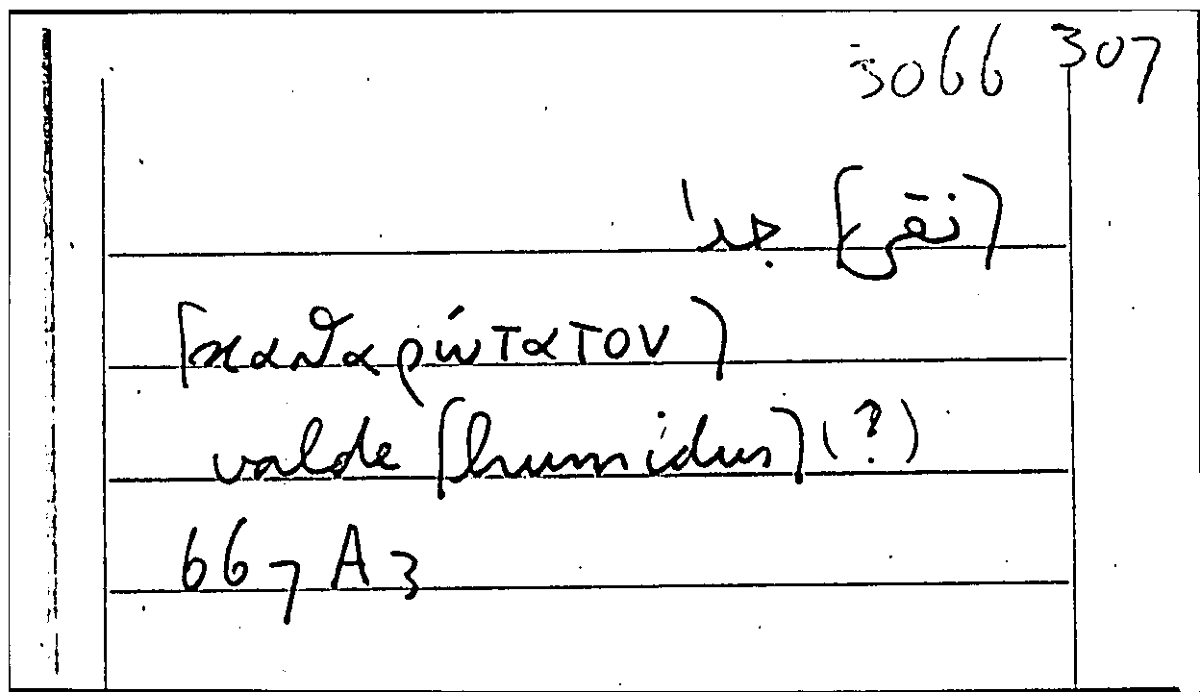 3066 307
[نقى] جدا
[καθαρώτατον]
valde [humidus] (?)
667 A 3